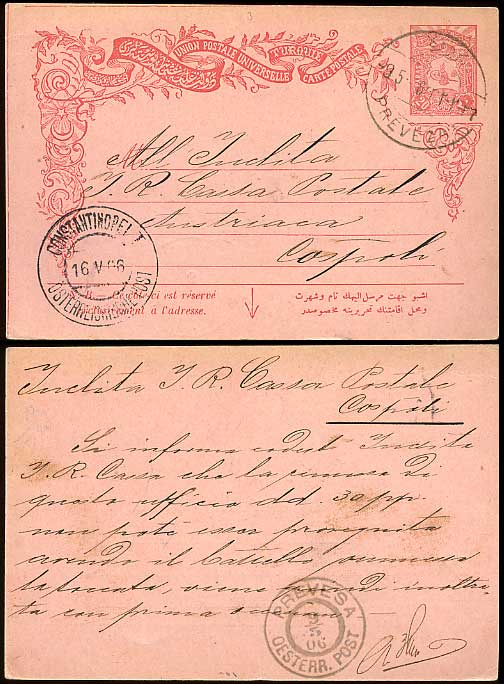 UNION POSTALE UNIVERSELLE
TURQUIE
CARTE POSTALE
PREVEZA
All Inclita
I. R. Cassa Postale
Austriaca
Cospoli
CONSTANTINOPEL I
16 V 06
ÖSTERREICHISCHE POST
côté ci est réservé
exclusivement à l'adresse.
اشبو جهت مرسل اليهك نام وشهرت
ومحل اقامتنك تحريرينه مخصوصدر
Inclita I. R. Cassa Postale
Cospoli
Si informa codest Inclita
I. R. Cassa che la rimessa di
questo ufficio dd. 30 pp.
non potè esser proseguita
avendo il battello
toccata, viene quindi inoltra-
ta con prima occasione
PREVESA
06
OESTERR. POST